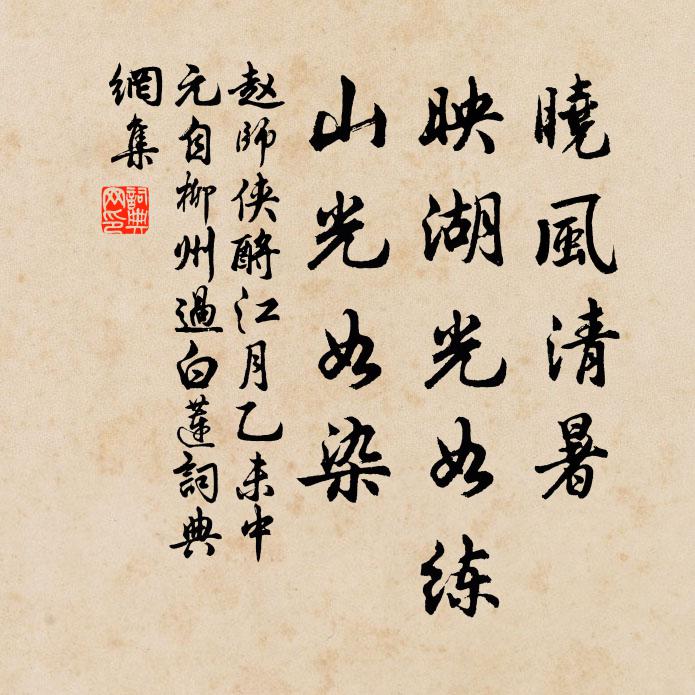 曉風清暑
映湖光如练
山光如染
赵師侠酹江月乙未中
元自柳州過白蓮詞典
網集
詞典
网印